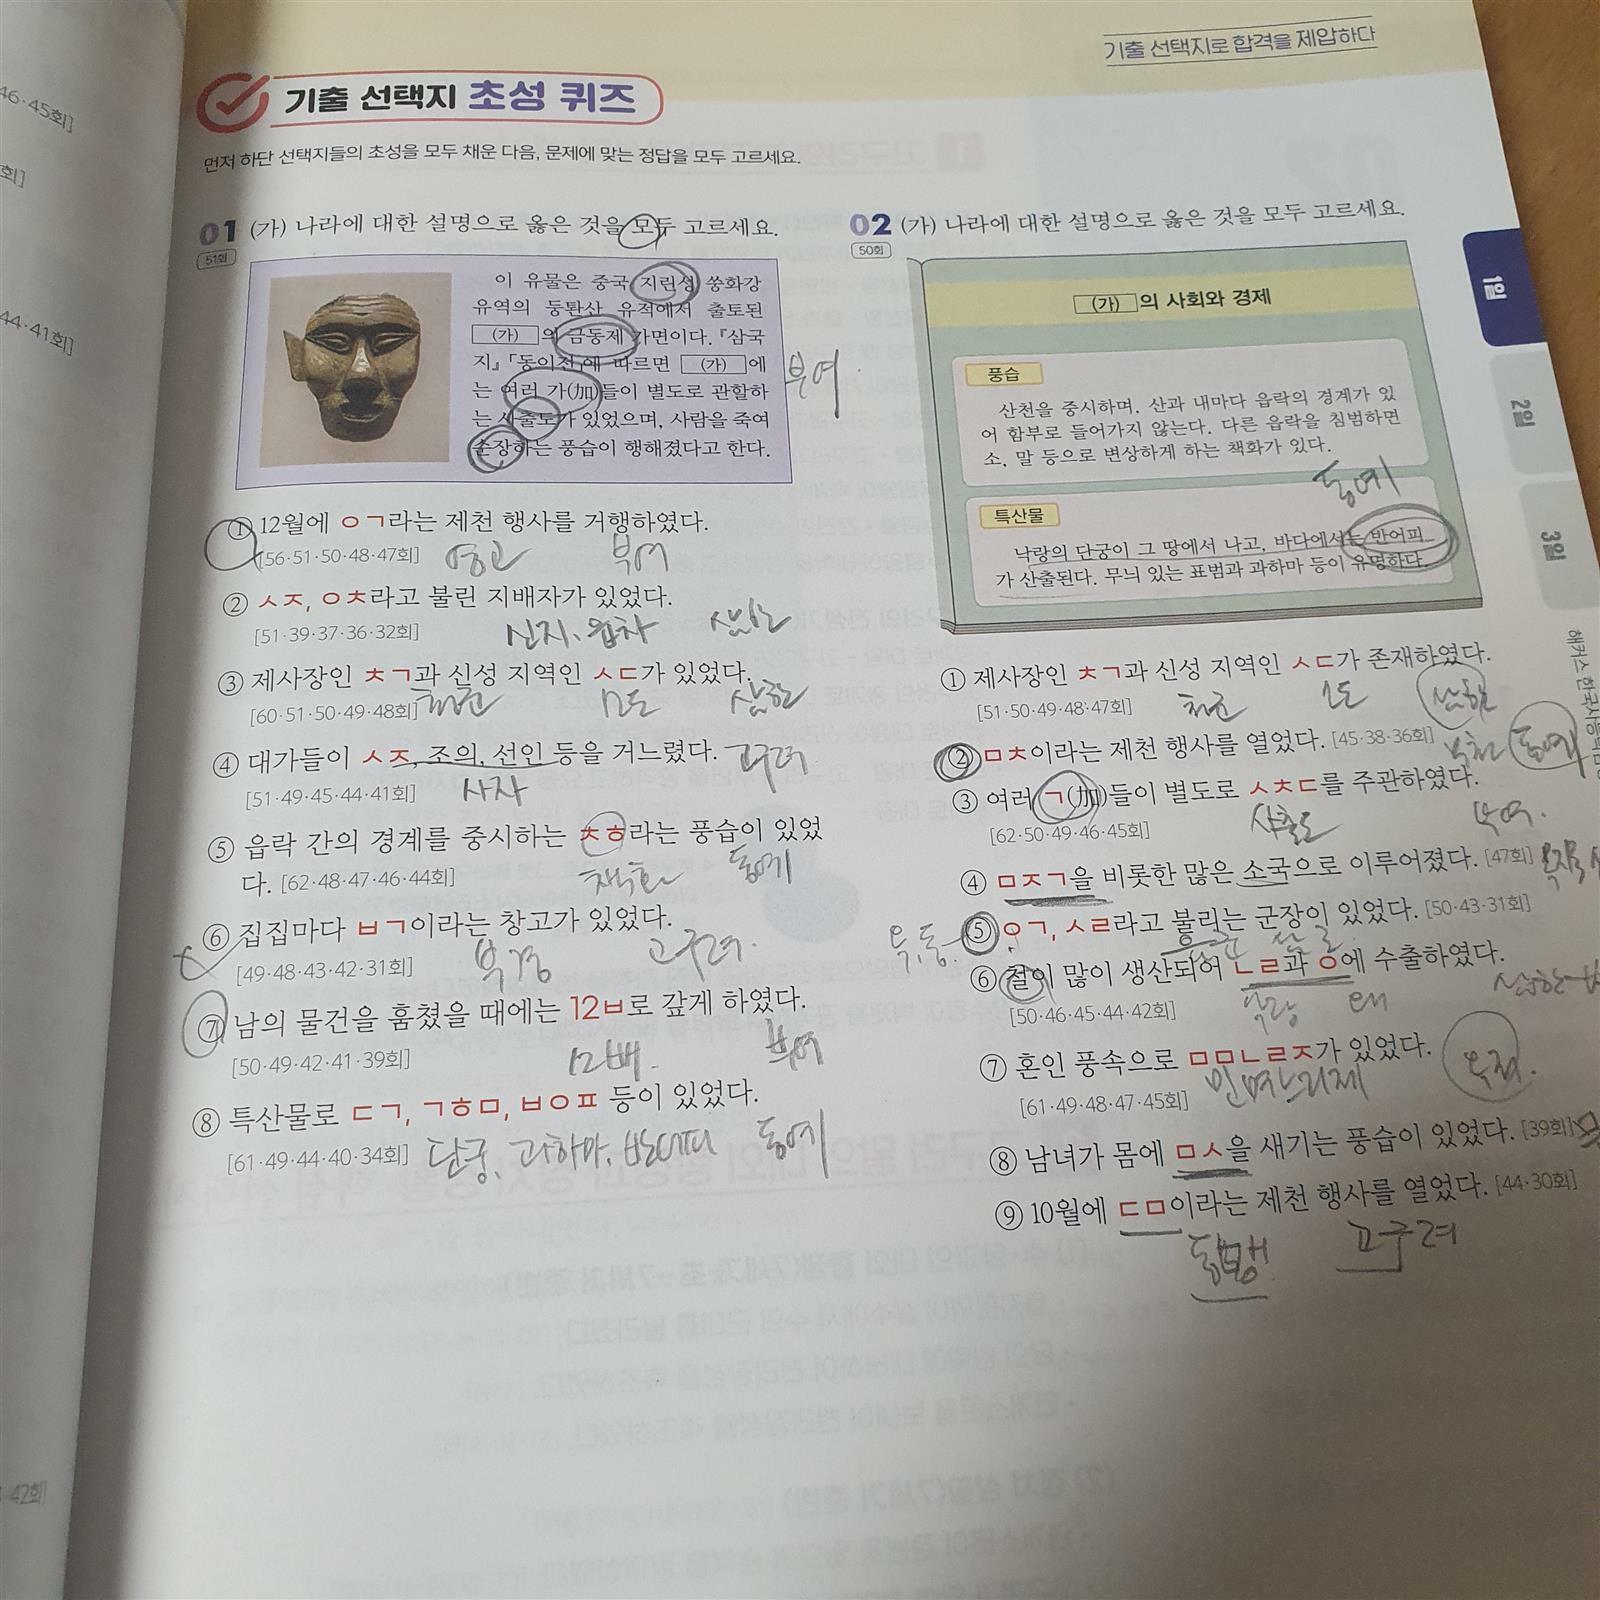 46·45회]
회]
44·41회]
·42회]
기출 선택지로 합격을 제압하다
기출 선택지 초성 퀴즈
먼저 하단 선택지들의 초성을 모두 채운 다음, 문제에 맞는 정답을 모두 고르세요.
01 (가) 나라에 대한 설명으로 옳은 것을 모두 고르세요.
51회
이 유물은 중국 지린성 쑹화강
유역의 둥퇀산 유적에서 출토된
(가)의 금동제 가면이다. 『삼국
지』「동이전」에 따르면 (가)에
는 여러 가(加)들이 별도로 관할하
는 사출도가 있었으며, 사람을 죽여
순장하는 풍습이 행해졌다고 한다.
부여
① 12월에 ㅇㄱ라는 제천 행사를 거행하였다.
[56·51·50·48·47회] 영고 부여
② ㅅㅈ, ㅇㅊ라고 불린 지배자가 있었다.
[51·39·37·36·32회] 신지, 읍차 삼한
③ 제사장인 ㅊㄱ과 신성 지역인 ㅅㄷ가 있었다.
[60·51·50·49·48회] 천군 소도 삼한
④ 대가들이 ㅅㅈ, 조의, 선인 등을 거느렸다. 고구려
[51·49·45·44·41회] 사자
⑤ 읍락 간의 경계를 중시하는 ㅊㅎ라는 풍습이 있었
다. [62·48·47·46·44회] 책화 동예
⑥ 집집마다 ㅂㄱ이라는 창고가 있었다.
[49·48·43·42·31회] 부경 고구려.
⑦ 남의 물건을 훔쳤을 때에는 12ㅂ로 갚게 하였다.
[50·49·42·41·39회] 12배. 부여
⑧ 특산물로 ㄷㄱ, ㄱㅎㅁ, ㅂㅇㅍ 등이 있었다.
[61·49·44·40·34회] 단궁, 과하마, 반어피 동예
02 (가) 나라에 대한 설명으로 옳은 것을 모두 고르세요.
50회
(가)의 사회와 경제
풍습
산천을 중시하며, 산과 내마다 읍락의 경계가 있
어 함부로 들어가지 않는다. 다른 읍락을 침범하면
소, 말 등으로 변상하게 하는 책화가 있다.
동예
특산물
낙랑의 단궁이 그 땅에서 나고, 바다에서는 반어피
가 산출된다. 무늬 있는 표범과 과하마 등이 유명하다.
① 제사장인 ㅊㄱ과 신성 지역인 ㅅㄷ가 존재하였다.
[51·50·49·48·47회] 천군 소도 삼한
② ㅁㅊ이라는 제천 행사를 열었다. [45·38·36회] 무천 동예
③ 여러 ㄱ(加)들이 별도로 ㅅㅊㄷ를 주관하였다.
[62·50·49·46·45회] 사출도 부여.
④ ㅁㅈㄱ을 비롯한 많은 소국으로 이루어졌다. [47회]
옥,동 ⑤ ㅇㄱ, ㅅㄹ라고 불리는 군장이 있었다. [50·43·31회]
읍군 삼로
⑥ 철이 많이 생산되어 ㄴㄹ과 ㅇ에 수출하였다.
[50·46·45·44·42회] 낙랑 왜 삼한
⑦ 혼인 풍속으로 ㅁㅁㄴㄹㅈ가 있었다.
[61·49·48·47·45회] 민며느리제 옥저.
⑧ 남녀가 몸에 ㅁㅅ을 새기는 풍습이 있었다. [39회]
⑨ 10월에 ㄷㅁ이라는 제천 행사를 열었다. [44·30회]
동맹 고구려
1일
2일
3일